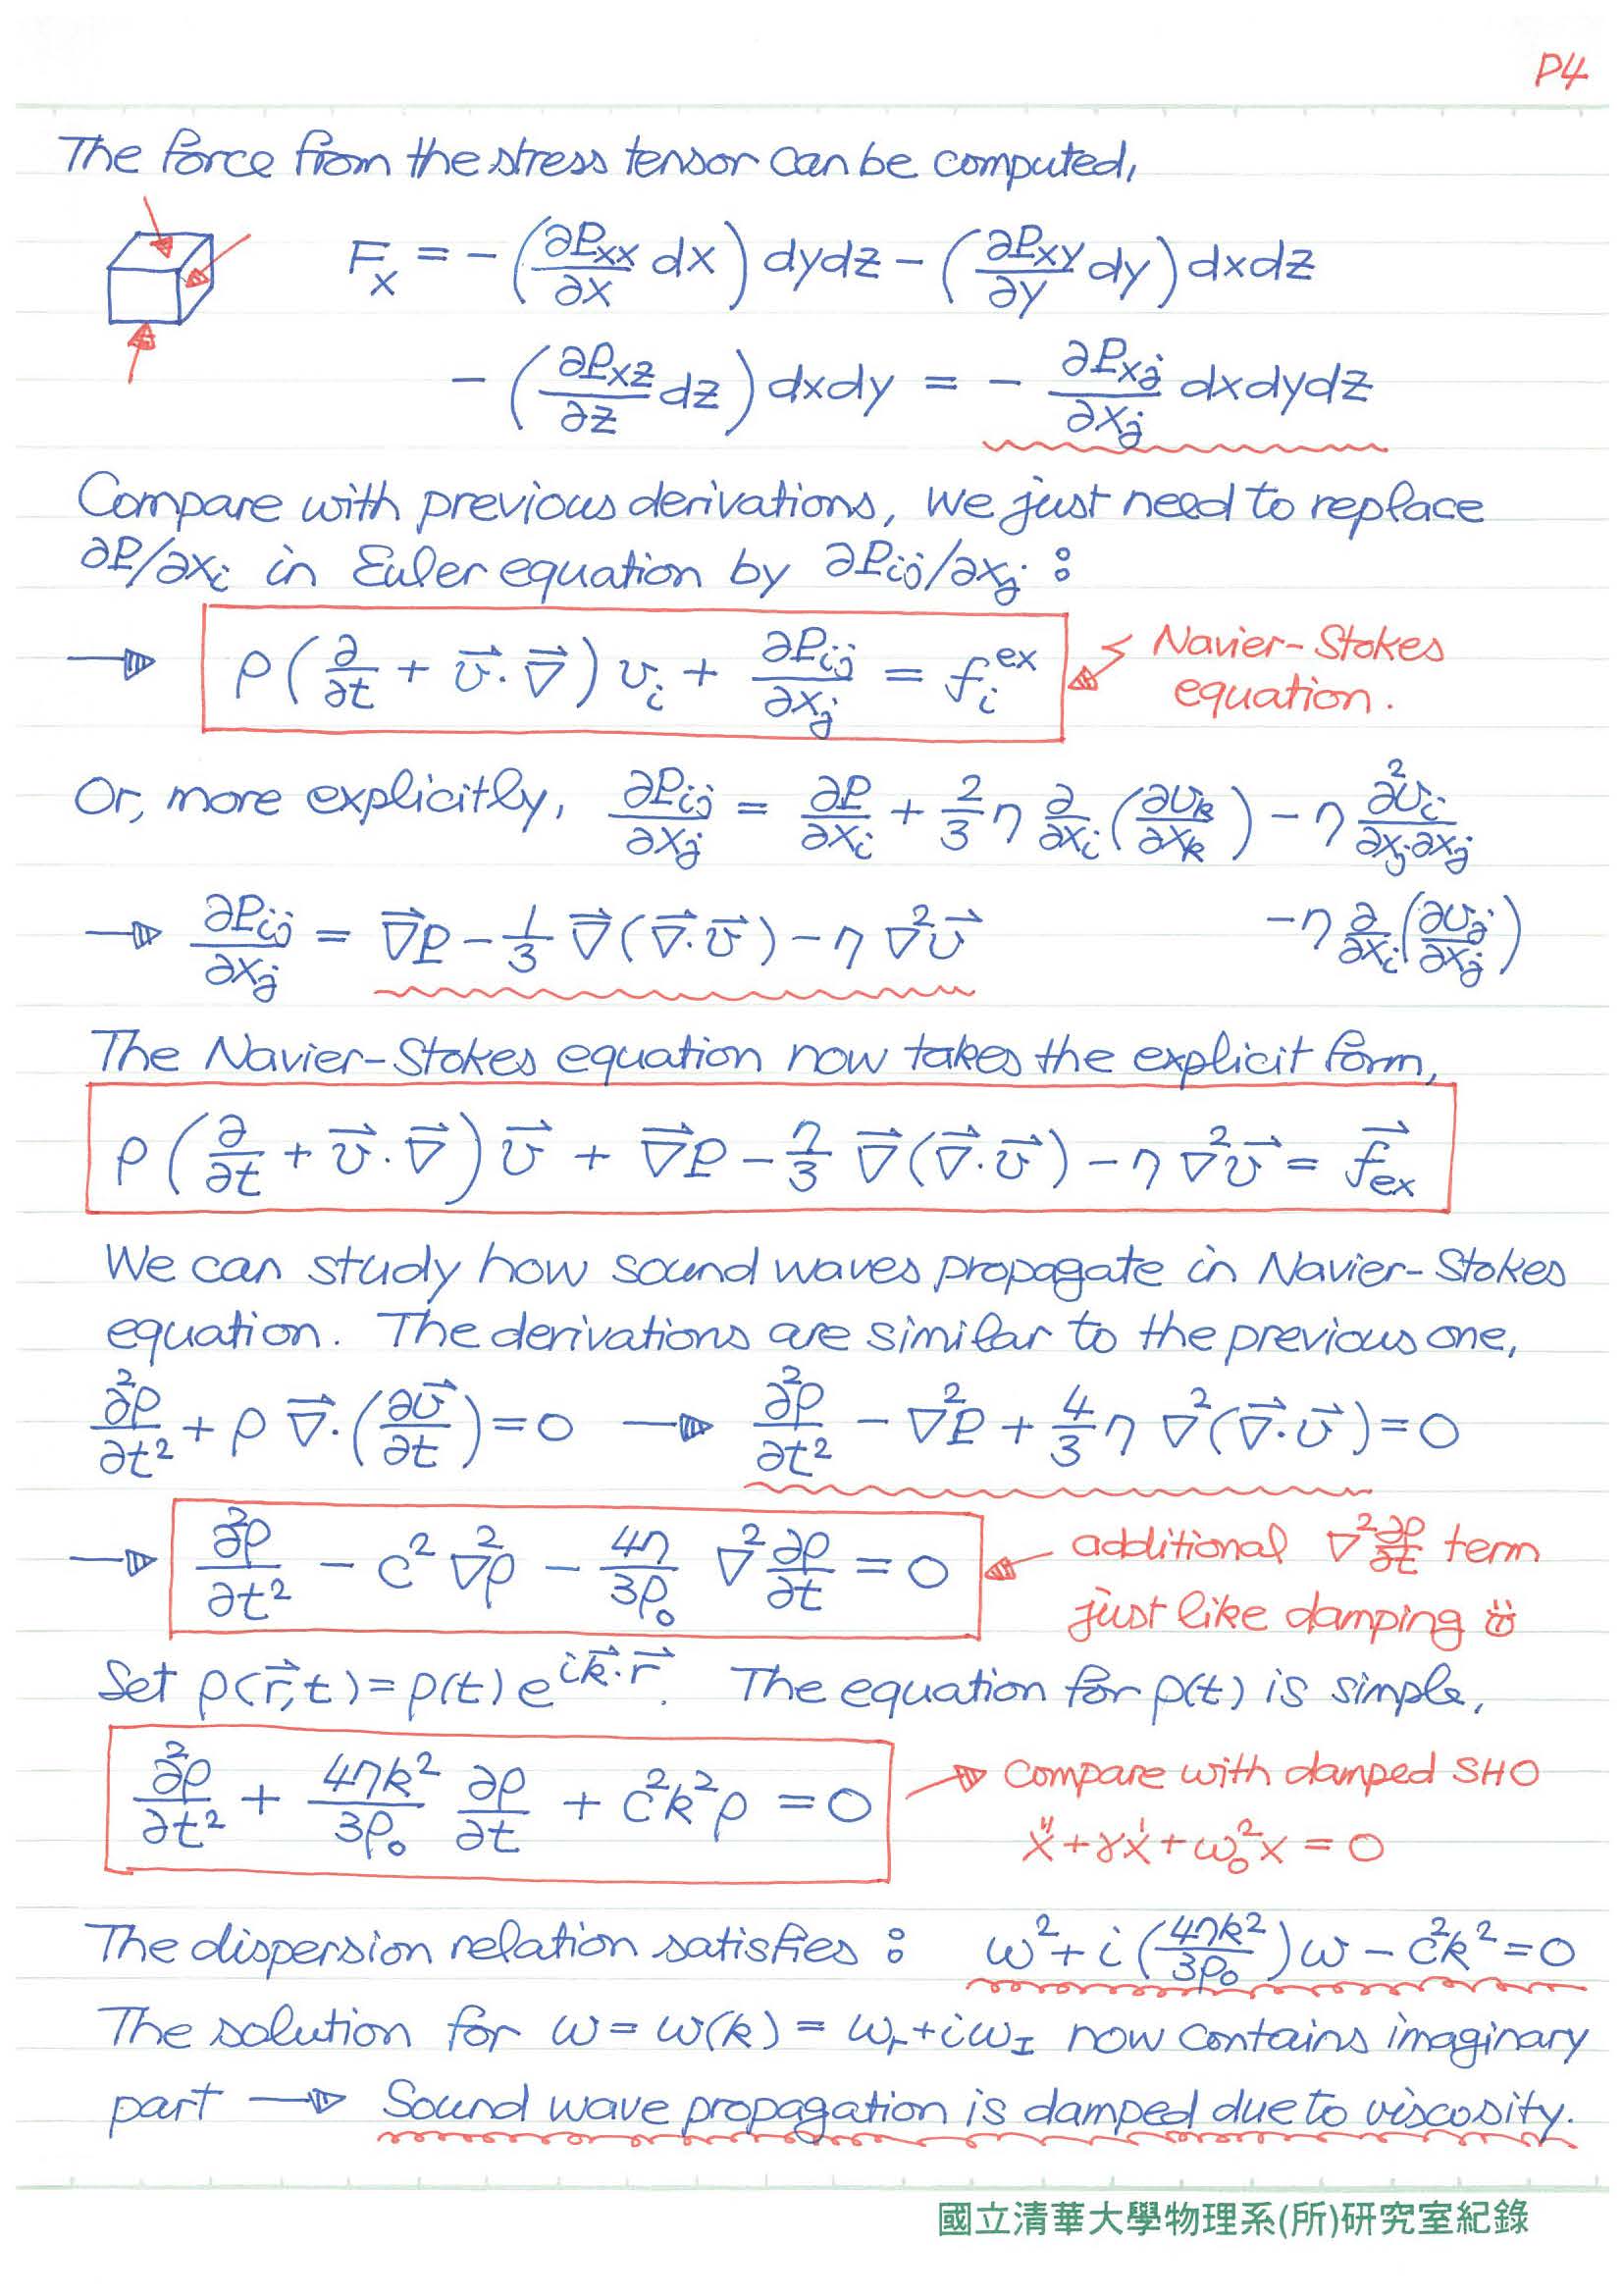 P4
The force from the stress tensor can be computed,
F_x = - (∂P_xx/∂x dx) dydz - (∂P_xy/∂y dy) dxdz
- (∂P_xz/∂z dz) dxdy = - ∂P_xj/∂x_j dxdydz
Compare with previous derivations, we just need to replace
∂P/∂x_i in Euler equation by ∂P_ij/∂x_j :
→ ρ(∂/∂t + v⃗·∇⃗) v_i + ∂P_ij/∂x_j = f_i^ex
Navier-Stokes
equation.
Or, more explicitly, ∂P_ij/∂x_j = ∂P/∂x_i + 2/3 η ∂/∂x_i (∂v_k/∂x_k) - η ∂²v_i/∂x_j∂x_j
- η ∂/∂x_i (∂v_j/∂x_j)
→ ∂P_ij/∂x_j = ∇⃗P - 1/3 ∇⃗(∇⃗·v⃗) - η ∇²v⃗
The Navier-Stokes equation now takes the explicit form,
ρ (∂/∂t + v⃗·∇⃗) v⃗ + ∇⃗P - η/3 ∇⃗(∇⃗·v⃗) - η ∇²v⃗ = f⃗_ex
We can study how sound waves propagate in Navier-Stokes
equation. The derivations are similar to the previous one,
∂²ρ/∂t² + ρ ∇⃗·(∂v⃗/∂t) = 0 → ∂²ρ/∂t² - ∇²P + 4/3 η ∇²(∇⃗·v⃗) = 0
→ ∂²ρ/∂t² - c² ∇²ρ - 4η/3ρ₀ ∇² ∂ρ/∂t = 0
additional ∇² ∂ρ/∂t term
just like damping
Set ρ(r⃗,t) = ρ(t) e^{ik⃗·r⃗}. The equation for ρ(t) is simple,
∂²ρ/∂t² + 4ηk²/3ρ₀ ∂ρ/∂t + c²k²ρ = 0
Compare with damped SHO
ẍ + γẋ + ω₀²x = 0
The dispersion relation satisfies : ω² + i(4ηk²/3ρ₀)ω - c²k² = 0
The solution for ω = ω(k) = ω_r + iω_I now contains imaginary
part → Sound wave propagation is damped due to viscosity.
國立清華大學物理系(所)研究室紀錄